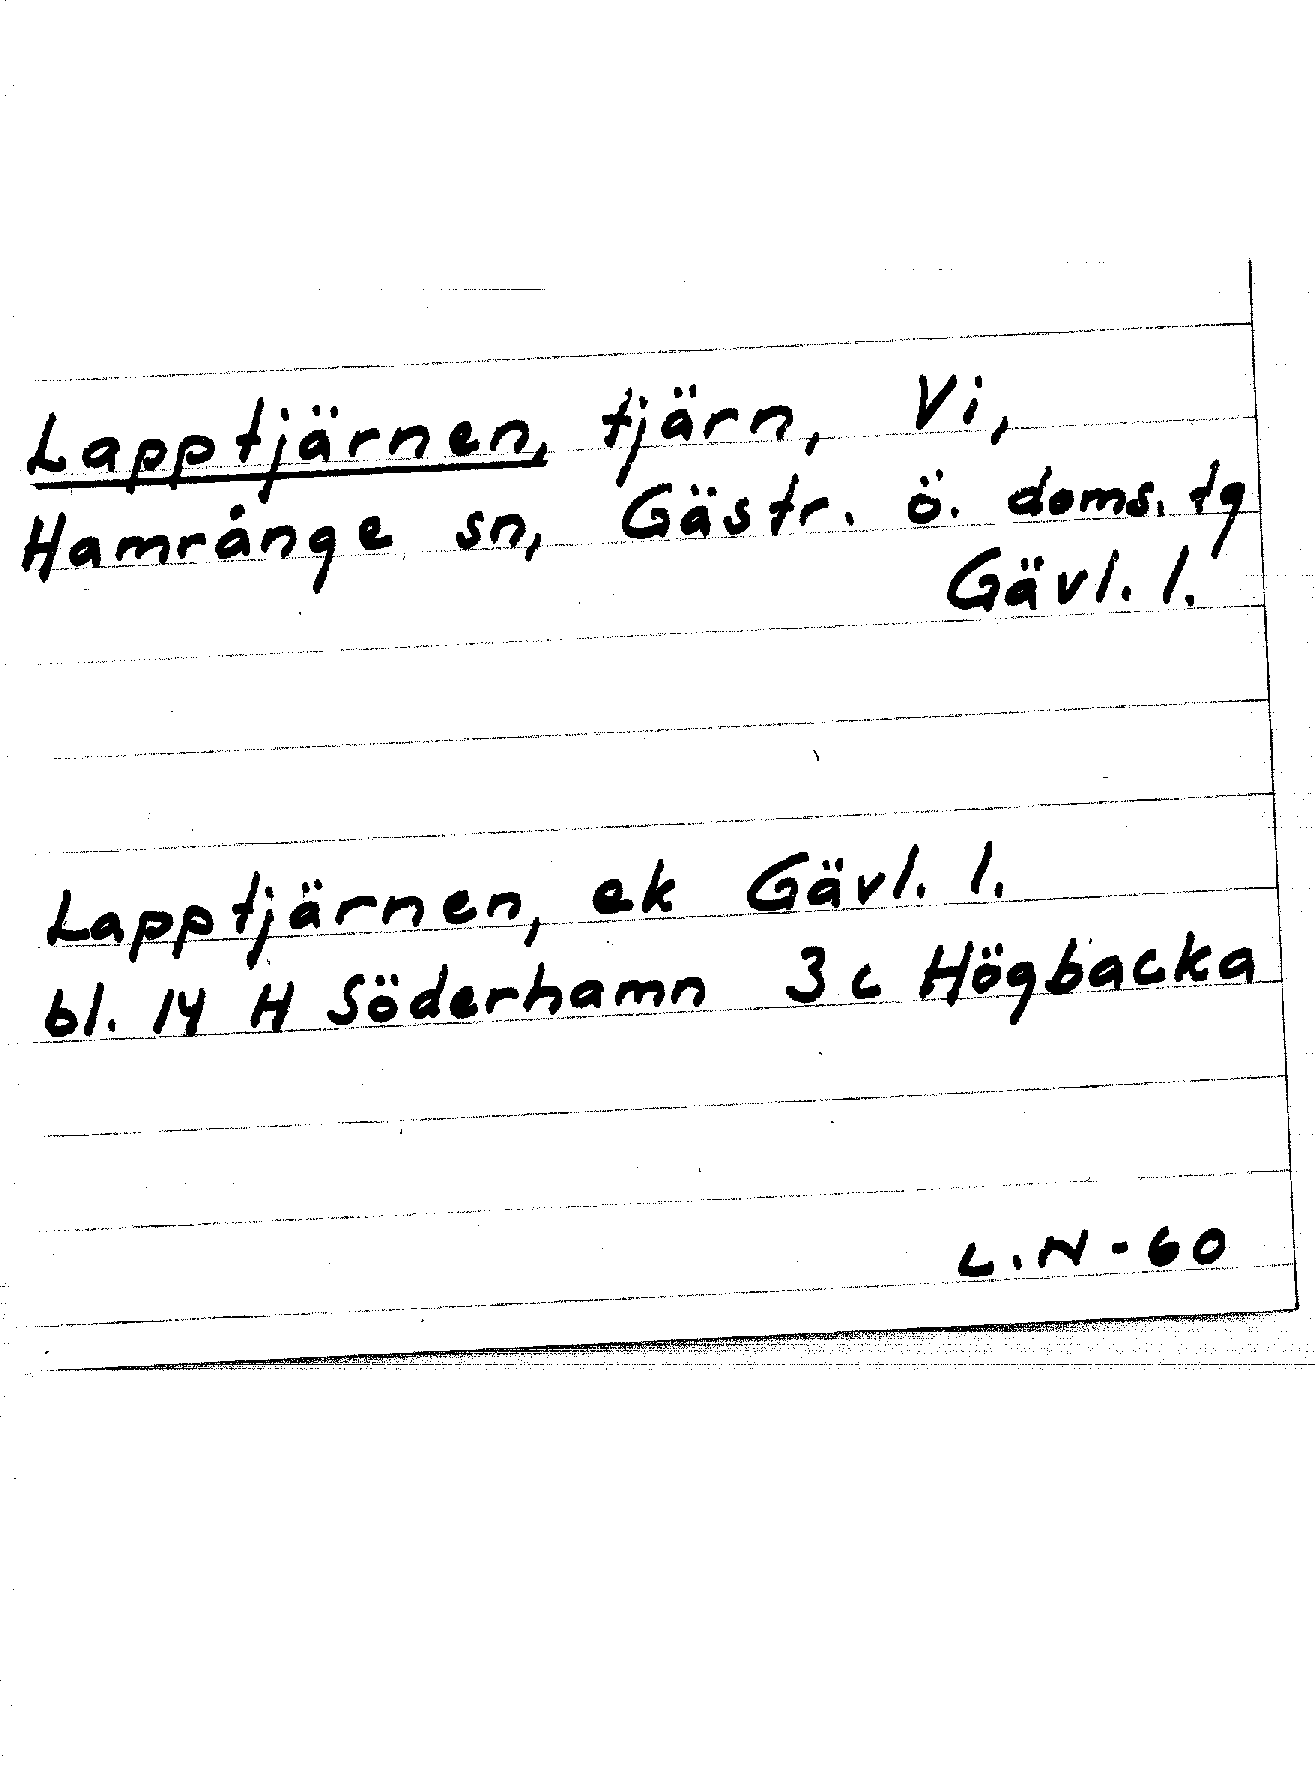 Lapptjärnen, tjärn, Vi,
Hamrånge sn, Gästr. ö. doms. tg
Gävl. l.
Lapptjärnen, ek Gävl. l.
bl. 14 H Söderhamn 3 c Högbacka
L.N-60